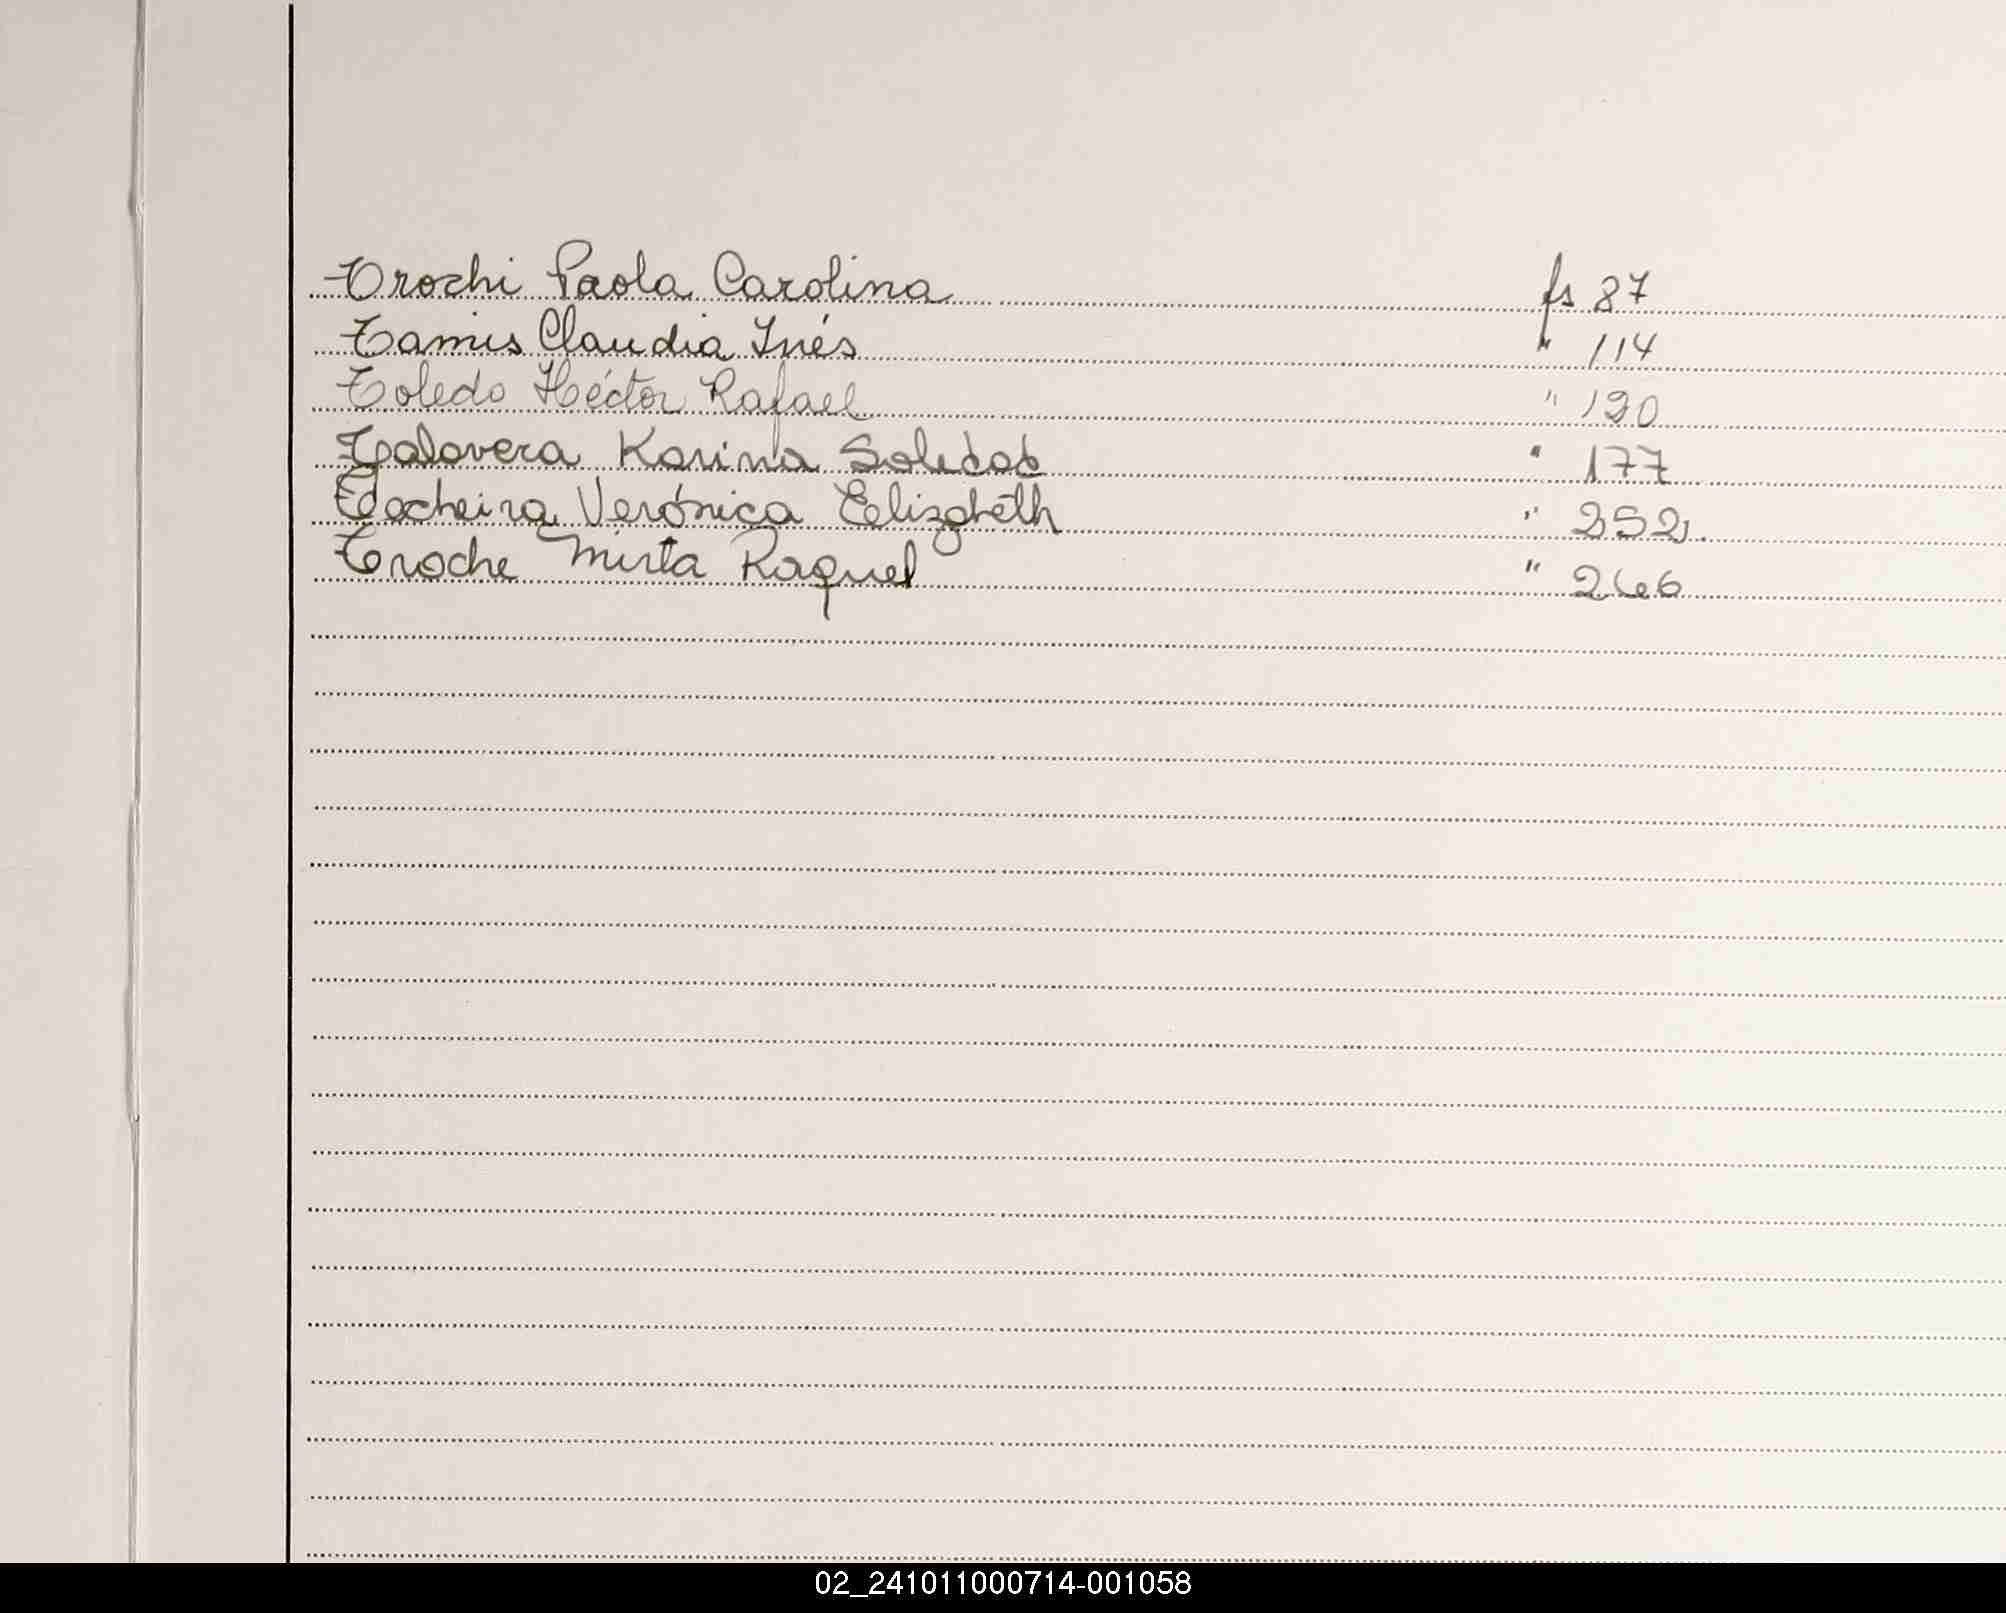 Trochi Paola Carolina fs 87
Tamis Claudia Inés " 114
Toledo Héctor Rafael " 120
Talavera Karina Soledad " 177
Verónica Elizabeth " 252.
Troche Mirta Raquel " 266
02_241011000714-001058